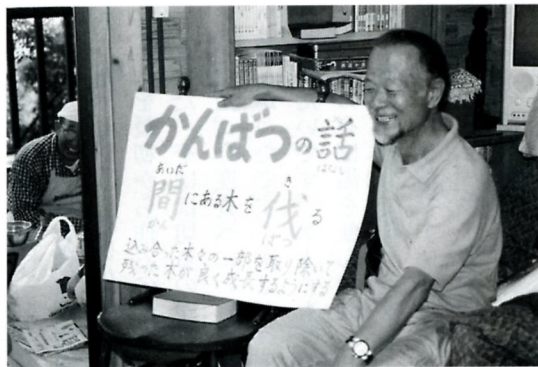 かんばつの話
はなし
あいだ さ
間にある木を伐る
かん ばつ
込み合った木々の一部を取り除いて
残った木が良く成長するようにする